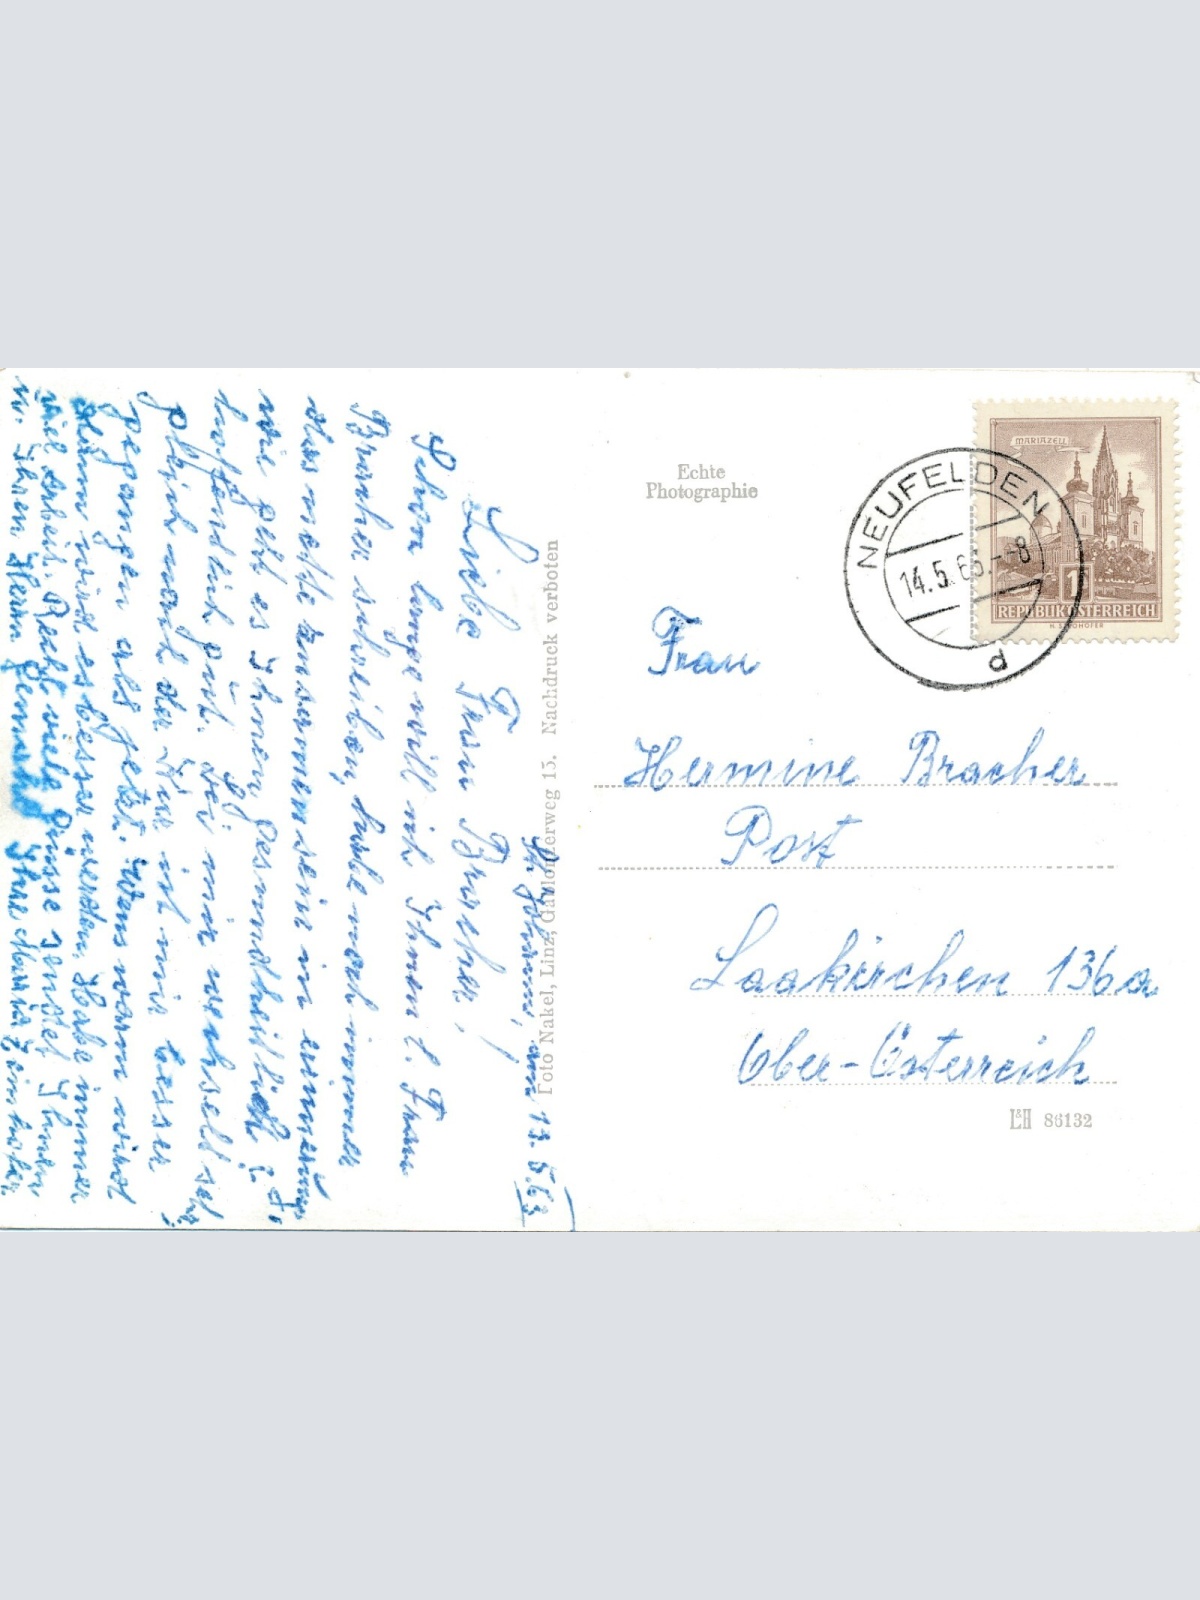 St. Johann, am 13.5.63
Liebe Frau Bracher!
Schon lange will ich Ihnen l. Frau
Bracher schreiben, habe noch immer
das nette zusammensein in
wie geht es Ihnen gesundheitlich? I,
hoffendlich gut. Bei mir wechselt
gleich nach der Kur ist mir besser
gegangen als jetzt. Wens warm wird
dann wird es besser werden. Habe immer
viel Arbeit. Recht viele Grüsse sendet Ihnen
u. Ihren Herrn Ihre Maria
Foto Nakel, Linz, Gablonzerweg 15. Nachdruck verboten
Echte
Photographie
MARIAZELL
1
REPUBLIK ÖSTERREICH
NEUFELDEN
14.5.63.--8
d
Frau
Hermine Bracher
Post
Laakirchen 136a
Ober-Österreich
L&H 86132